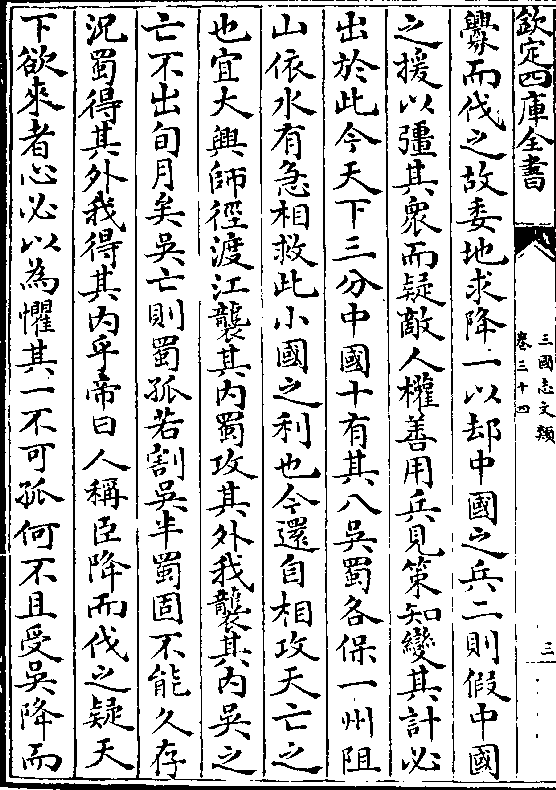 欽定四庫全書
三國志文類
卷三十四
三
釁而伐之故委地求降一以却中國之兵二則假中國
之援以彊其衆而疑敵人權善用兵見策知變其計必
出於此今天下三分中國十有其八吳蜀各保一州阻
山依水有急相救此小國之利也今還自相攻天亡之
也宜大興師徑渡江襲其内蜀攻其外我襲其内吳之
亡不出旬月矣吳亡則蜀孤若割吳半蜀固不能久存
况蜀得其外我得其内乎帝曰人稱臣降而伐之疑天
下欲來者心必以為懼其一不可孤何不且受吳降而